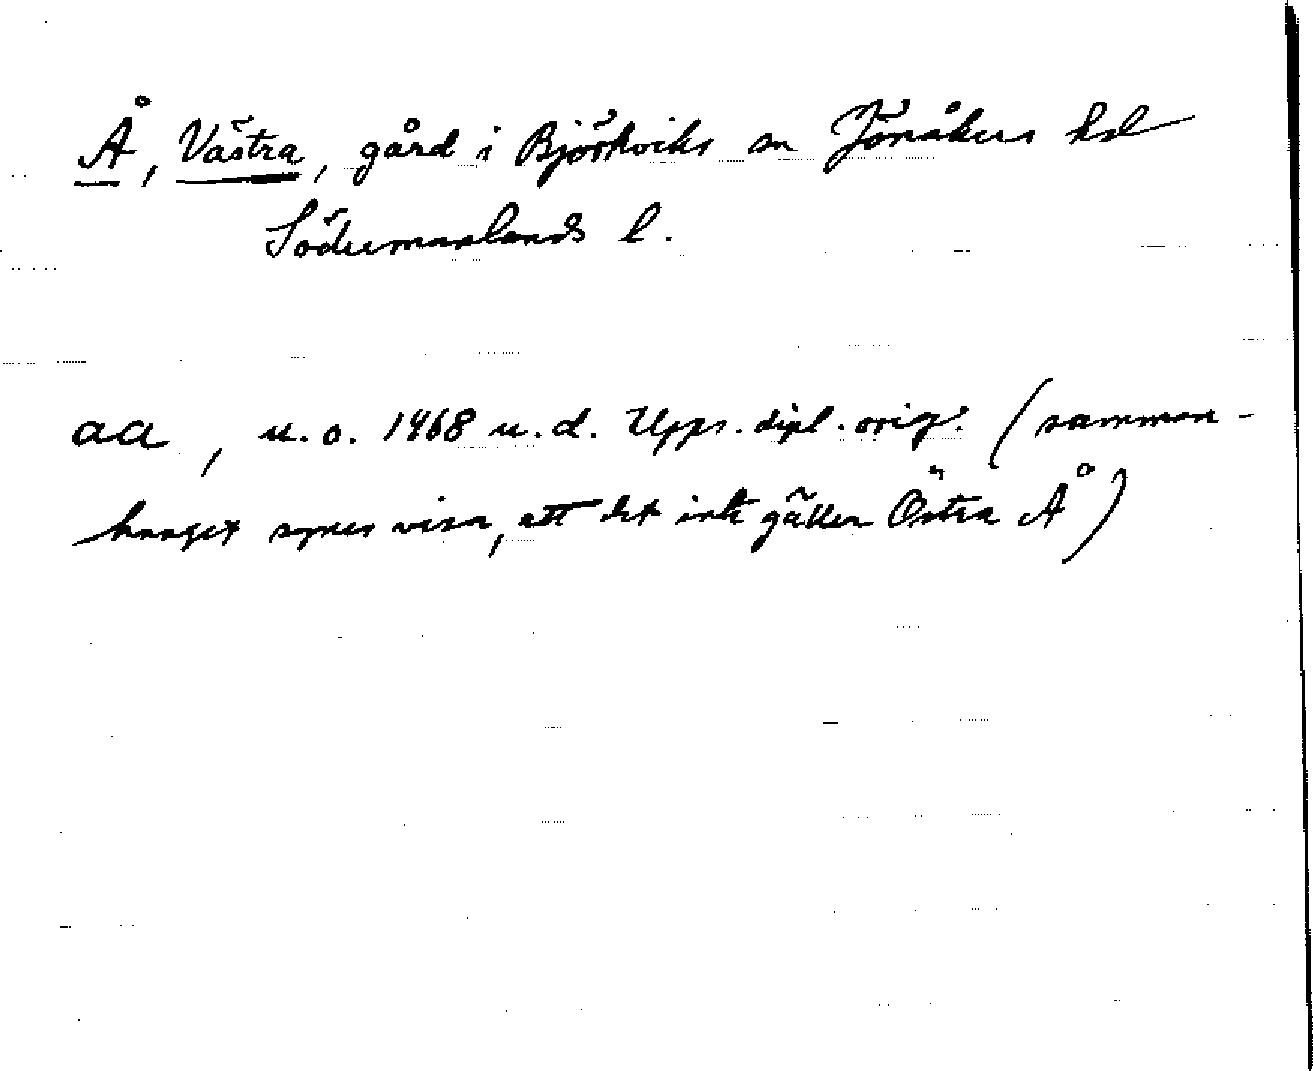 Å, Västra, gård i Björkviks sn Jönåkers hd
Södermanlands l.
aa, u. o. 1468 u. d. Upps. dipl. orig. (samman-
hanget synes visa, att det inte gäller Östra Å)